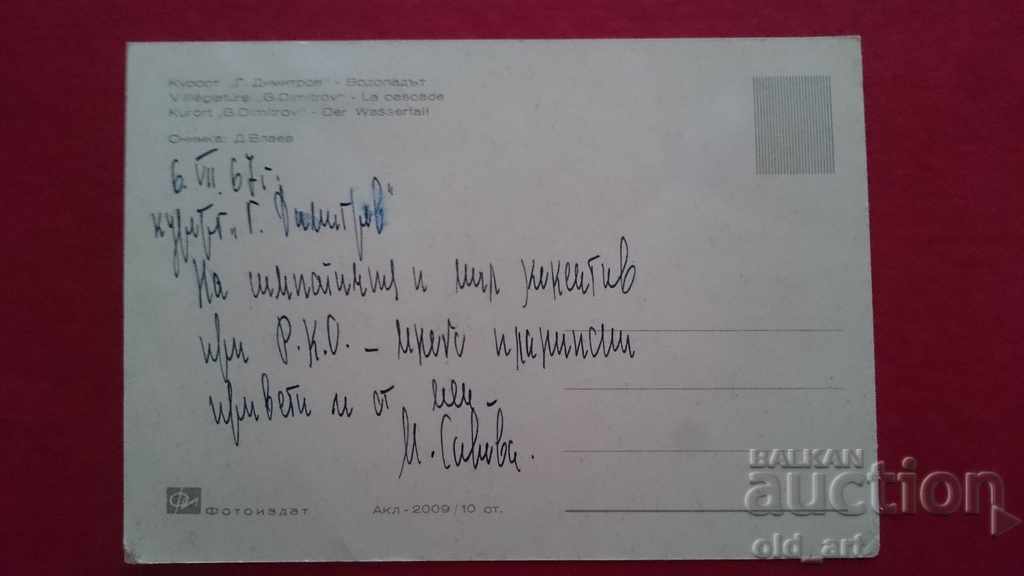 Курорт „Г. Димитров" - Водопадът
Villégiature „G. Dimitrov" - La cascade
Kurort „G. Dimitrov" - Der Wasserfall
Снимка: Д. Влаев
6. VII. 67 г.
курорт „Г. Димитров"
На симпатичния и мил колектив
при Р.К.О. – много
привети и от мен –
М. Савова.
Фотоиздат
Акл-2009/10 ст.
BALKAN
auction
old_art